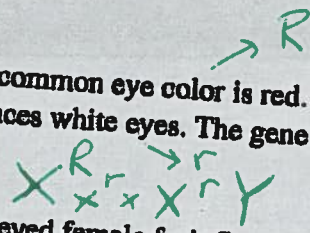 → R
common eye color is red.
ces white eyes. The gene
→ r
X^R x^r x X^r Y
eyed female